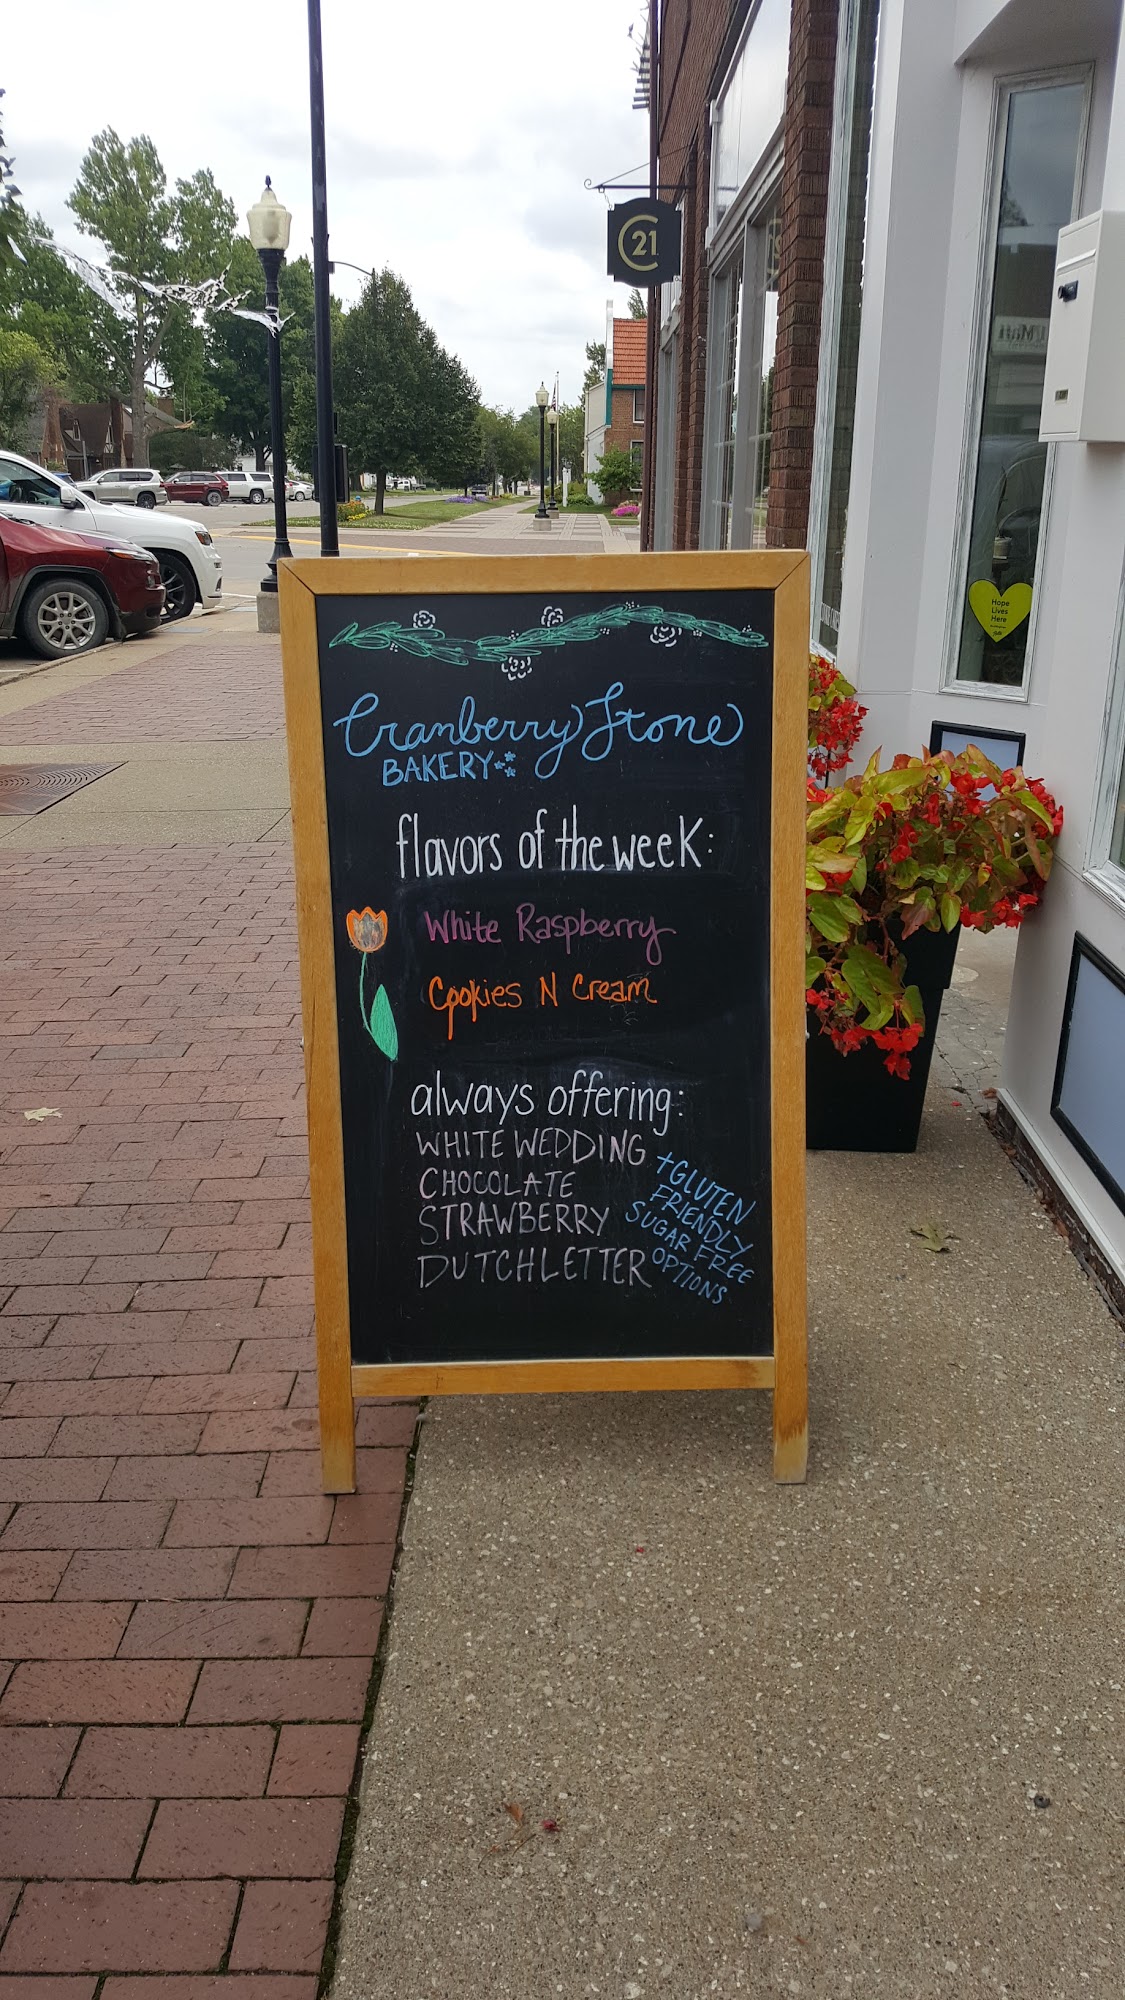 C21
Hope
Lives
Here
Cranberry Stone
BAKERY
flavors of the week:
White Raspberry
Cookies N Cream
always offering:
WHITE WEDDING
CHOCOLATE
STRAWBERRY
DUTCH LETTER
+GLUTEN
FRIENDLY
SUGAR FREE
OPTIONS